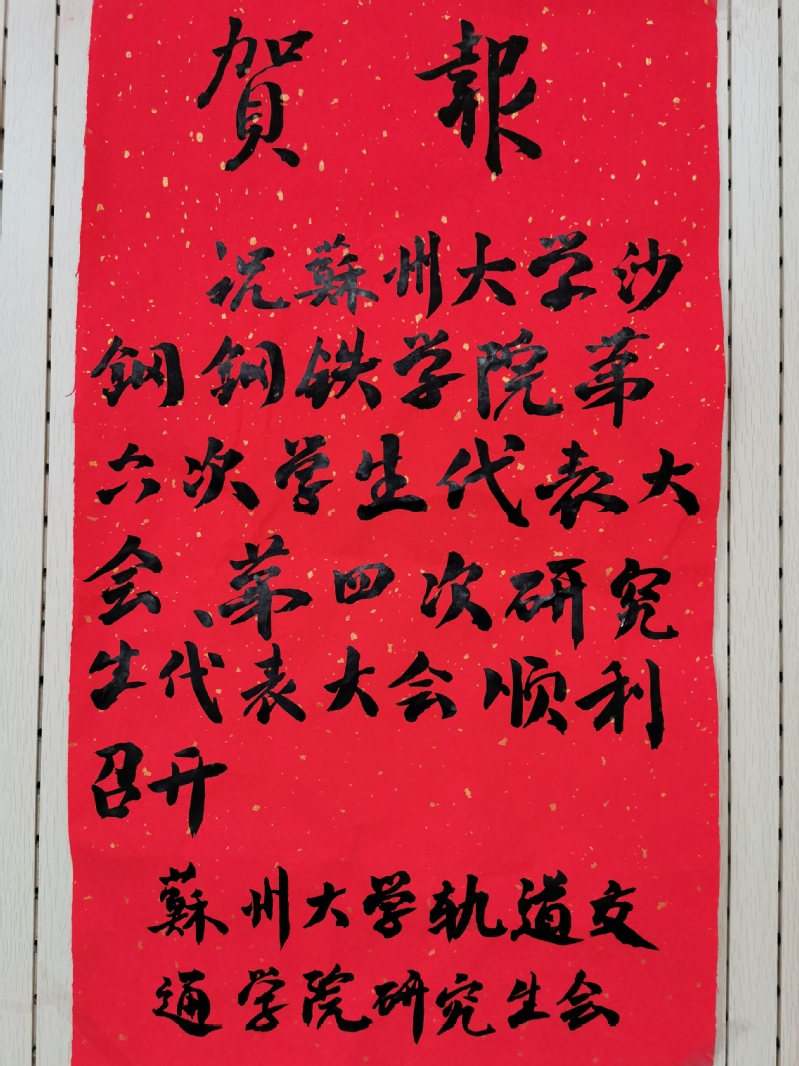 賀報
祝蘇州大学沙
钢钢铁学院第
六次学生代表大
会、第四次研究
生代表大会顺利
召开
蘇州大学轨道交
通学院研究生会